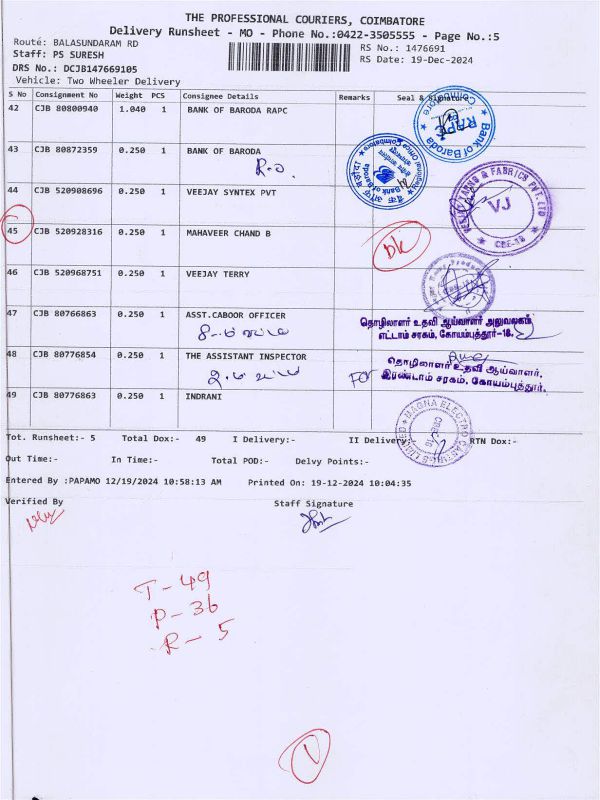 THE PROFESSIONAL COURIERS, COIMBATORE
Delivery Runsheet - MO - Phone No.:0422-3505555 - Page No.:5
Routé: BALASUNDARAM RD
RS No.: 1476691
Staff: PS SURESH
RS Date: 19-Dec-2024
DRS No.: DCJB147669105
Vehicle: Two Wheeler Delivery
S No Consignment No Weight PCS Consignee Details Remarks Seal & Signature
42 CJB 80800940 1.040 1 BANK OF BARODA RAPC
Bank of Baroda
RAPC
Coimbatore
43 CJB 80872359 0.250 1 BANK OF BARODA
R.O.
Bank of Baroda
44 CJB 520908696 0.250 1 VEEJAY SYNTEX PVT
& FABRICS PVT. LTD
VJ
CBE-18
45 CJB 520928316 0.250 1 MAHAVEER CHAND B
DK
46 CJB 520968751 0.250 1 VEEJAY TERRY
47 CJB 80766863 0.250 1 ASST.CABOOR OFFICER
தொழிலாளர் உதவி ஆய்வாளர் அலுவலகம்
எட்டாம் சரகம், கோயம்புத்தூர்-18.
48 CJB 80776854 0.250 1 THE ASSISTANT INSPECTOR
FOR
தொழிலாளர் உதவி ஆய்வாளர்,
இரண்டாம் சரகம், கோயம்புத்தூர்.
49 CJB 80776863 0.250 1 INDRANI
MAGNA ELECTRO CASTINGS LIMITED
Tot. Runsheet:- 5 Total Dox:- 49 I Delivery:- II Delivery:- RTN Dox:-
Out Time:- In Time:- Total POD:- Delvy Points:-
Entered By :PAPAMO 12/19/2024 10:58:13 AM Printed On: 19-12-2024 10:04:35
Verified By Staff Signature
T - 49
P - 36
R - 5